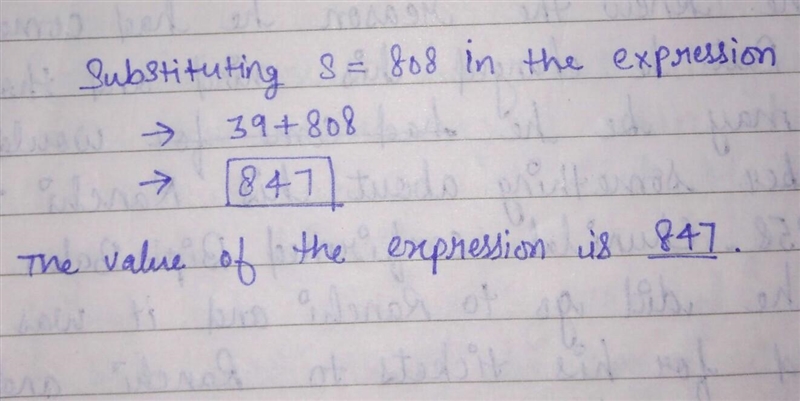 Substituting S = 808 in the expression
→ 39 + 808
→ 847
The value of the expression is 847.